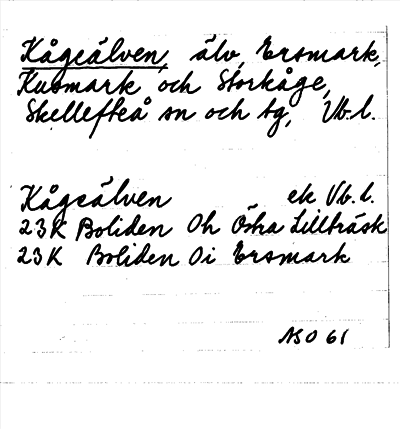 Kågeälven, älv, Ersmark,
Kusmark och Storkåge,
Skellefteå sn och tg, Vb.l.
Kågeälven ek Vb.l.
23K Boliden 0h Östra Lillträsk
23K Boliden 0i Ersmark
NSO 61